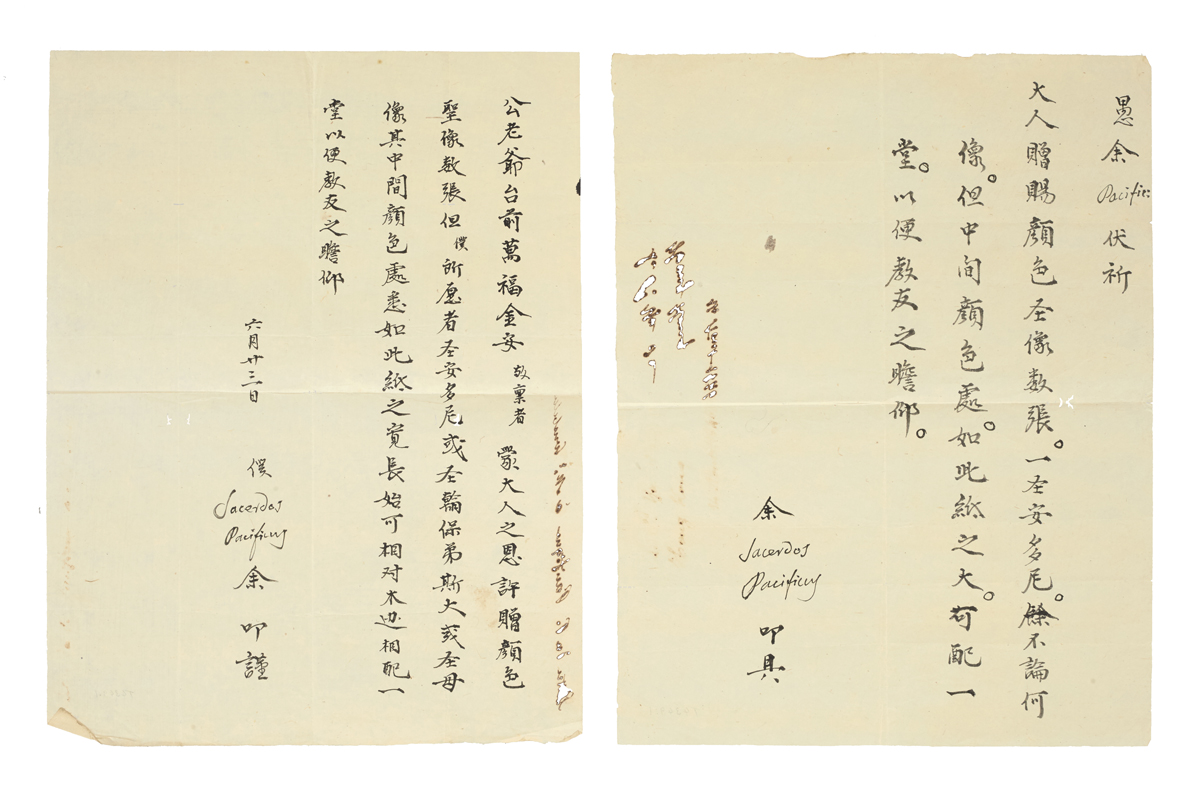 公老爺台前萬福金安 敬稟者 蒙大人之恩許贈顏色
聖像数張但僕所愿者圣安多尼或圣輪保弟斯大或圣母
像其中間顏色處悉如此紙之寬長始可相对木边相配一
堂以便教友之瞻仰
六月廿三日
僕 Sacerdos Pacificus 余 叩謹
愚余 Pacific: 伏祈
大人贈賜顏色圣像数張。一圣安多尼。餘不論何
像。但中间顏色處。如此紙之大。可配一
堂。以便教友之瞻仰。
余 Sacerdos Pacificus 叩具